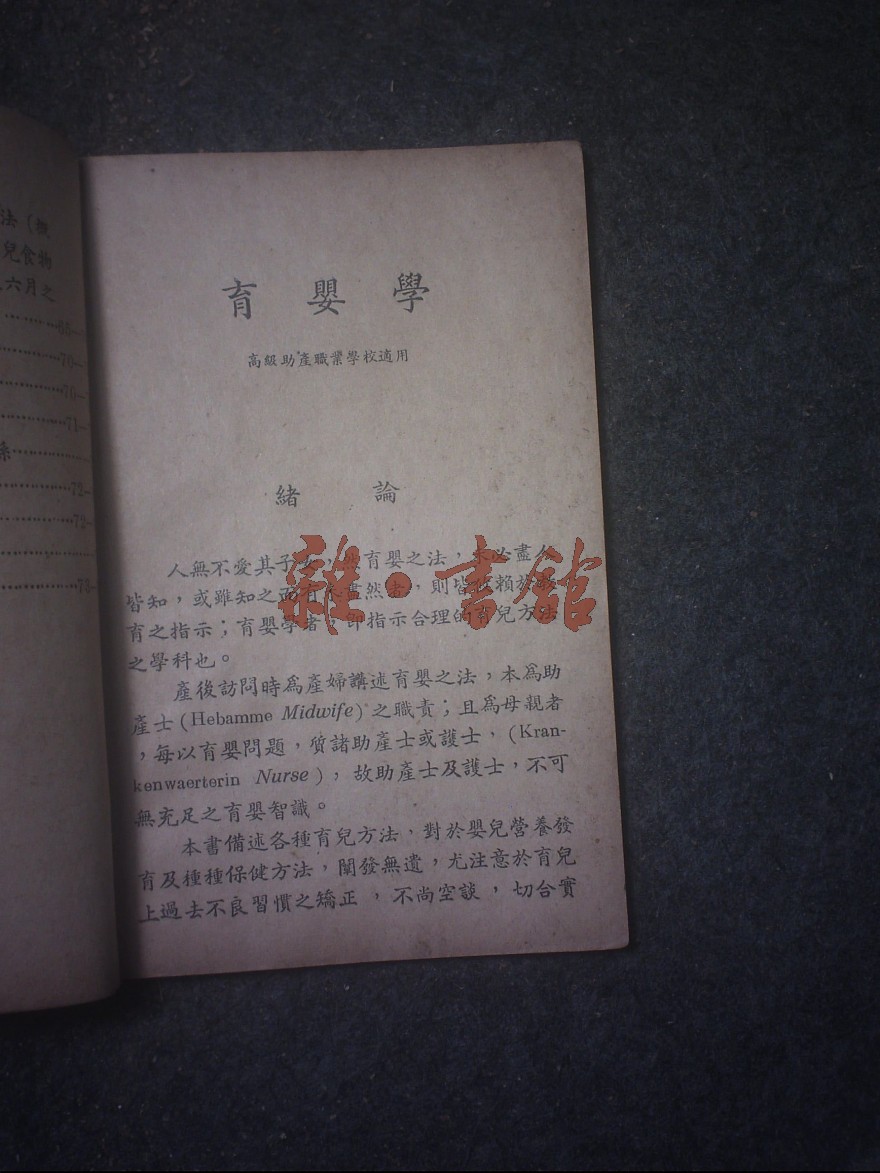 法（概
兒食物
六月之
70
70
71
係
72
72
73
育嬰學
高級助產職業學校適用
緒論
人無不愛其子女，育嬰之法，未必盡人
皆知，或雖知之而有不盡然者，則皆依賴於教
育之指示；育嬰學者，即指示合理的育兒方法
之學科也。
產後訪問時爲產婦講述育嬰之法，本爲助
產士(Hebamme Midwife)之職責；且爲母親者
，每以育嬰問題，質諸助產士或護士，(Kran-
kenwaerterin Nurse)，故助產士及護士，不可
無充足之育嬰智識。
本書備述各種育兒方法，對於嬰兒營養發
育及種種保健方法，闡發無遺，尤注意於育兒
上過去不良習慣之矯正，不尚空談，切合實
雜·書館